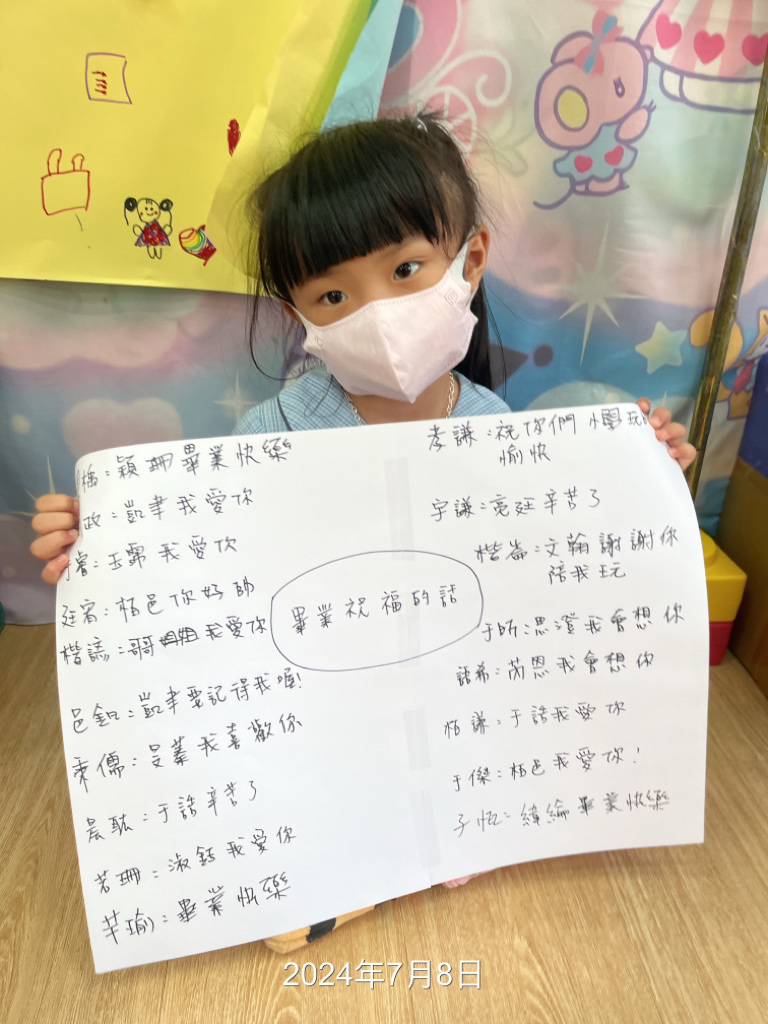 楷：穎珊畢業快樂
政：凱聿我愛你
睿：玉霈我愛你
廷宥：栢邑你好帥
楷諺：哥我愛你
邑釦：凱聿要記得我喔！
秉儒：旻蓁我喜歡你
晨耘：于誥辛苦了
若珊：淑鈺我愛你
芊瑜：畢業快樂
畢業祝福的話
孝謙：祝你們 玩
愉快
宇謙：亮廷辛苦了
楷崙：文翰謝謝你
陪我玩
于昕：思澄我會想你
語希：芮恩我會想你
栢謙：于誥我愛你
于傑：栢邑我愛你！
子恆：緯綸畢業快樂
2024年7月8日